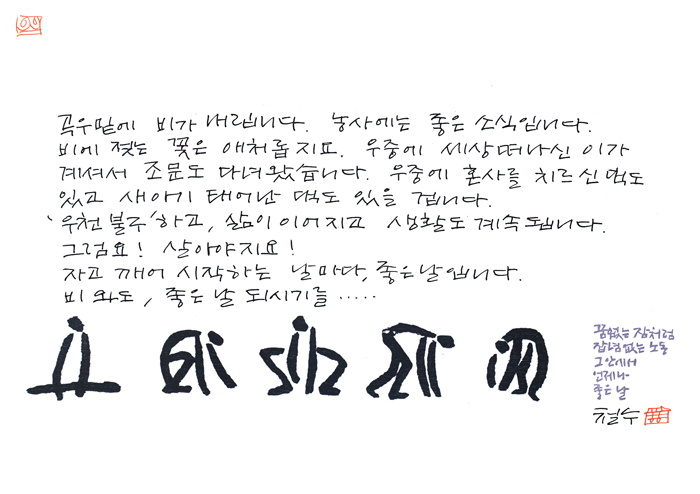 곡우밑에 비가 내립니다. 농사에는 좋은 소식입니다.
비에 젖는 꽃은 애처롭지요. 우중에 세상떠나신 이가
계셔서 조문도 다녀왔습니다. 우중에 혼사를 치르신 댁도
있고 새아기 태어난 댁도 있을 겁니다.
'우천불구'하고, 삶이 이어지고 생활도 계속됩니다.
그럼요! 살아야지요!
자고 깨어 시작하는 날마다, 좋은날입니다.
비 와도, 좋은 날 되시기를 .....
꿈없는 잠처럼
잡념없는 노동
그 안에서
언제나
좋은 날
철수